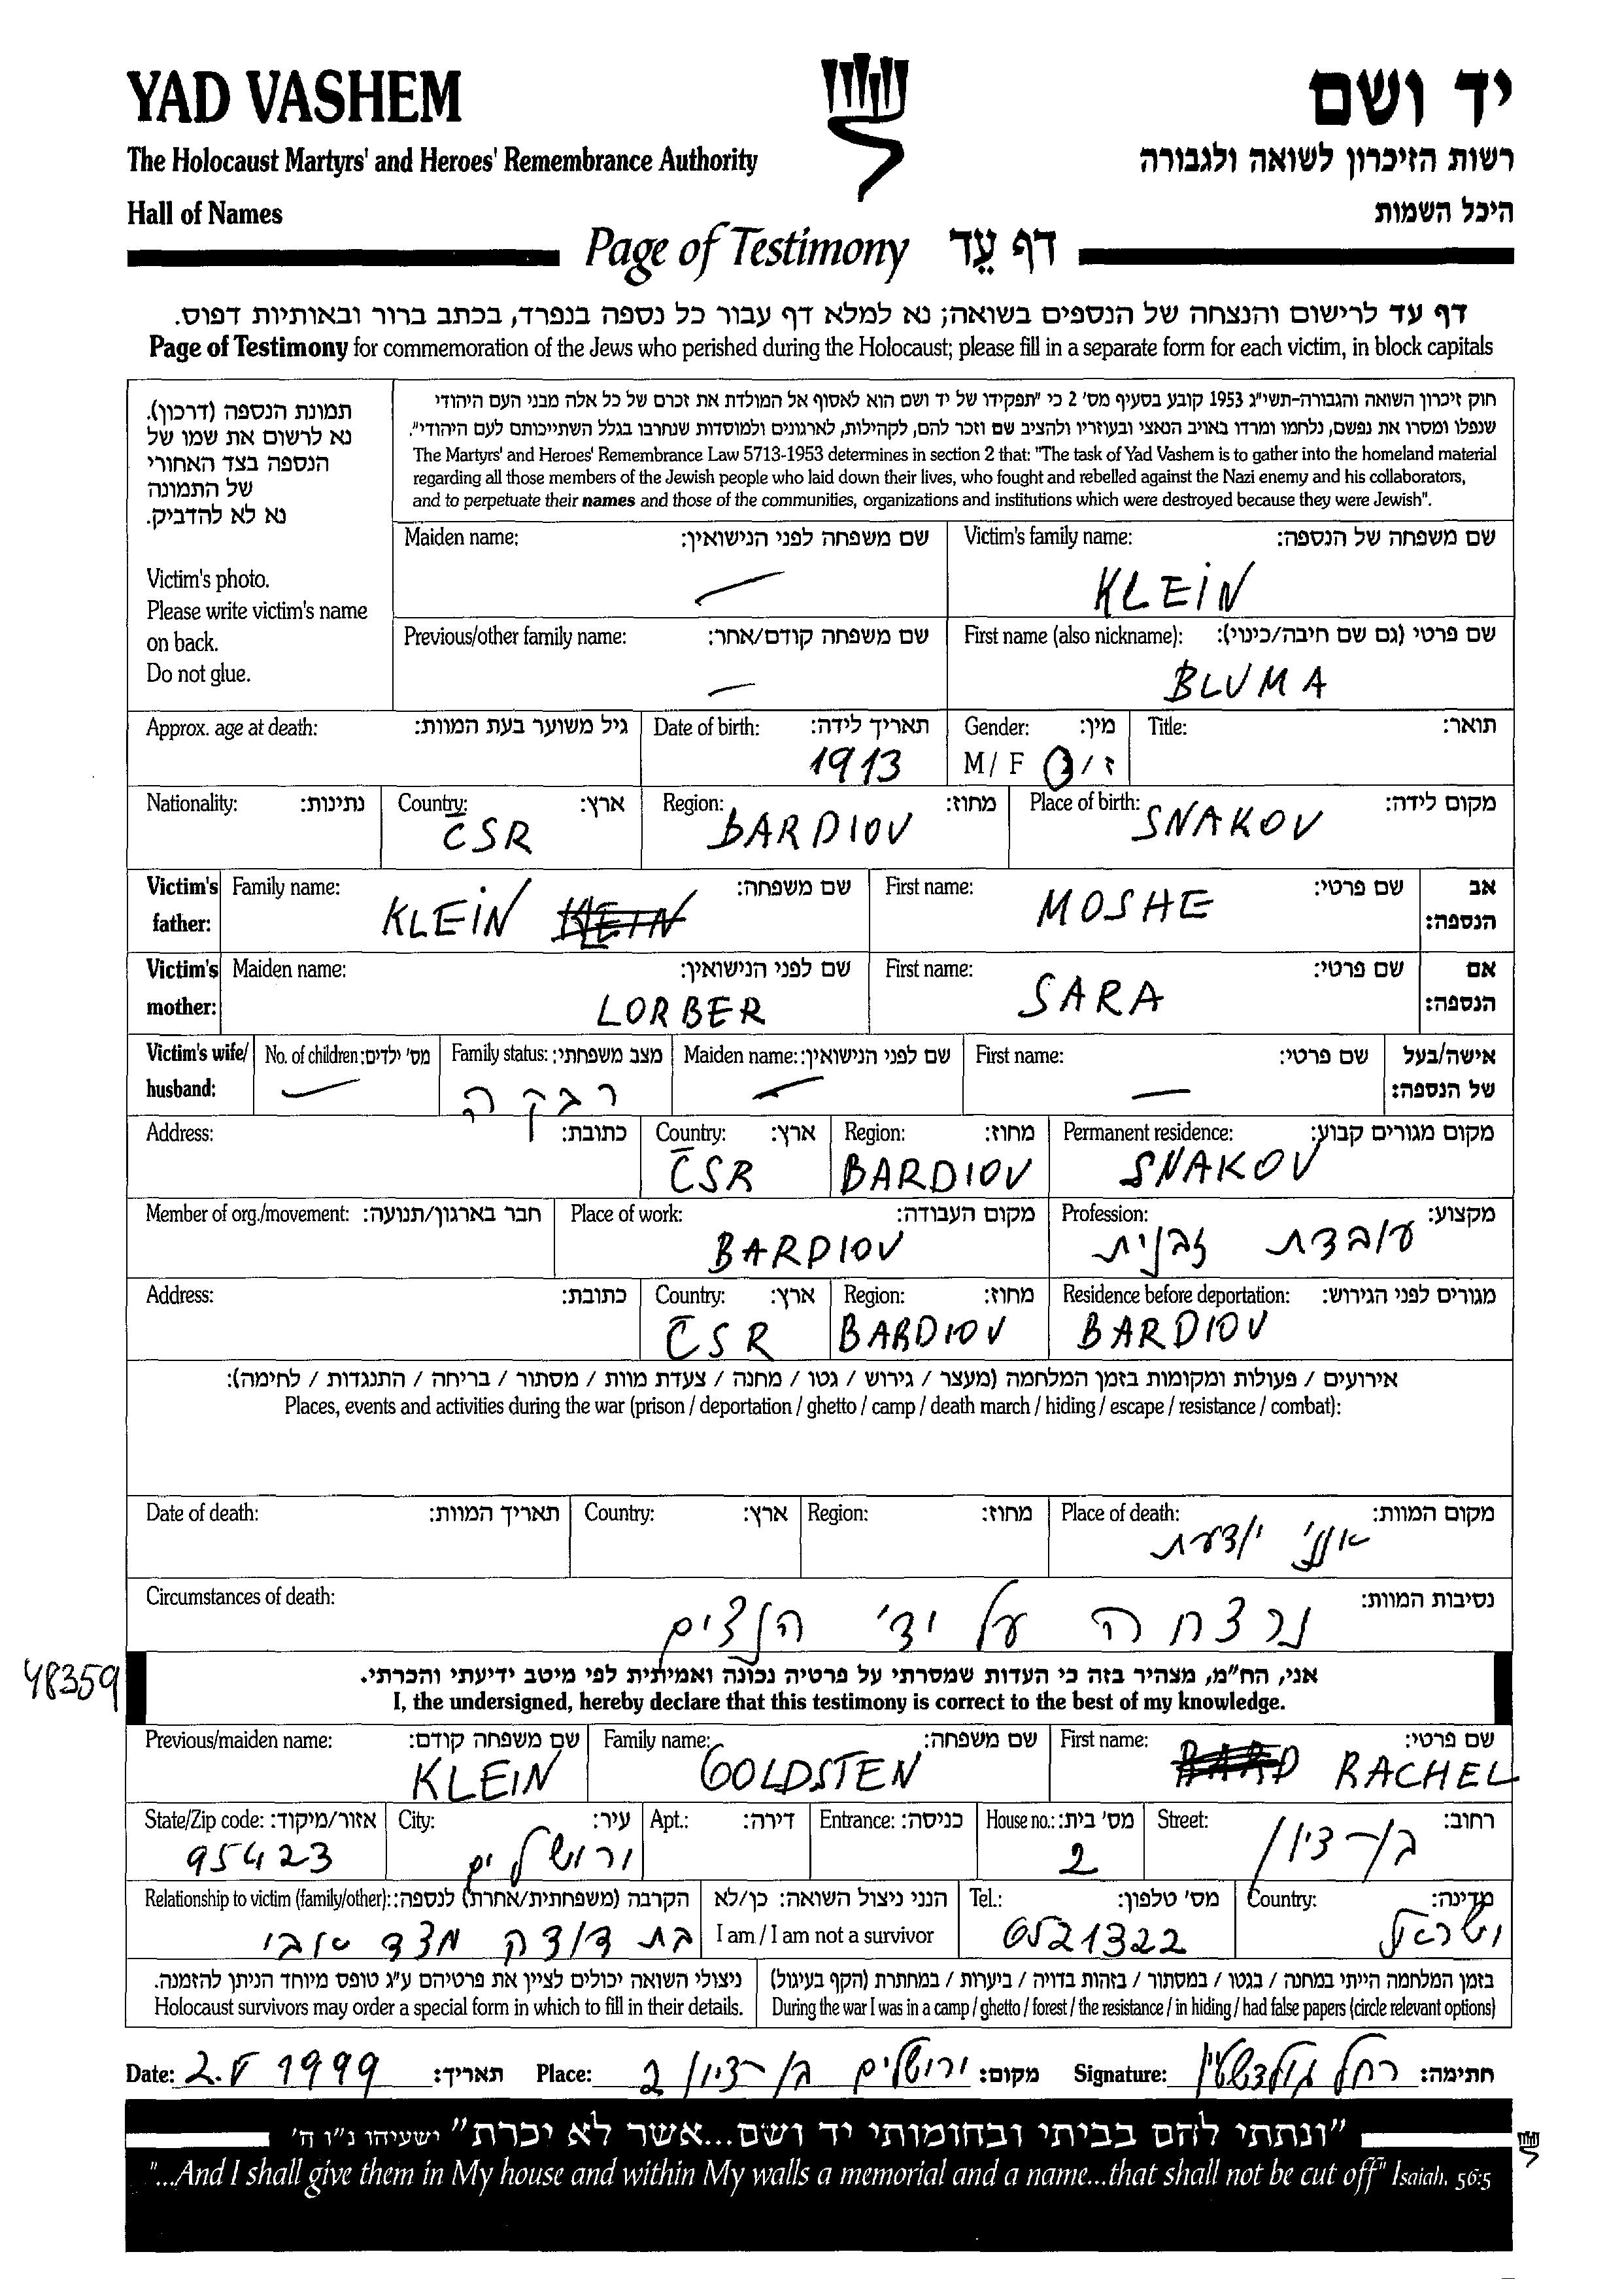 YAD VASHEM
יד ושם
The Holocaust Martyrs' and Heroes' Remembrance Authority
רשות הזיכרון לשואה ולגבורה
Hall of Names
היכל השמות
Page of Testimony דף עֵד
דף עד לרישום והנצחה של הנספים בשואה; נא למלא דף עבור כל נספה בנפרד, בכתב ברור ובאותיות דפוס.
Page of Testimony for commemoration of the Jews who perished during the Holocaust; please fill in a separate form for each victim, in block capitals
תמונת הנספה (דרכון).
נא לרשום את שמו של
הנספה בצד האחורי
של התמונה
נא לא להדביק.
Victim's photo.
Please write victim's name
on back.
Do not glue.
חוק זיכרון השואה והגבורה-תשי"ג 1953 קובע בסעיף מס' 2 כי "תפקידו של יד ושם הוא לאסוף אל המולדת את זכרם של כל אלה מבני העם היהודי
שנפלו ומסרו את נפשם, נלחמו ומרדו באויב הנאצי ובעוזריו ולהציב שם וזכר להם, לקהילות, לארגונים ולמוסדות שנחרבו בגלל השתייכותם לעם היהודי".
The Martyrs' and Heroes' Remembrance Law 5713-1953 determines in section 2 that: "The task of Yad Vashem is to gather into the homeland material
regarding all those members of the Jewish people who laid down their lives, who fought and rebelled against the Nazi enemy and his collaborators,
and to perpetuate their names and those of the communities, organizations and institutions which were destroyed because they were Jewish".
Maiden name: שם משפחה לפני הנישואין: Victim's family name: שם משפחה של הנספה:
— KLEIN
Previous/other family name: שם משפחה קודם/אחר: First name (also nickname): שם פרטי (גם שם חיבה/כינוי):
— BLUMA
Approx. age at death: גיל משוער בעת המוות: Date of birth: תאריך לידה: Gender: מין: Title: תואר:
1913 M/ F נ / ז
Nationality: נתינות: Country: ארץ: Region: מחוז: Place of birth: מקום לידה:
ČSR BARDIOV SNAKOV
Victim's father: Family name: שם משפחה: First name: שם פרטי: אב הנספה:
KLEIN KLEIN MOSHE
Victim's mother: Maiden name: שם לפני הנישואין: First name: שם פרטי: אם הנספה:
LORBER SARA
Victim's wife/ husband: No. of children: מס' ילדים: Family status: מצב משפחתי: Maiden name: שם לפני הנישואין: First name: שם פרטי: אישה/בעל של הנספה:
— רבקה — —
Address: כתובת: Country: ארץ: Region: מחוז: Permanent residence: מקום מגורים קבוע:
ČSR BARDIOV SNAKOV
Member of org./movement: חבר בארגון/תנועה: Place of work: מקום העבודה: Profession: מקצוע:
BARDIOV עובדת זבנית
Address: כתובת: Country: ארץ: Region: מחוז: Residence before deportation: מגורים לפני הגירוש:
ČSR BARDIOV BARDIOV
אירועים / פעולות ומקומות בזמן המלחמה (מעצר / גירוש / גטו / מחנה / צעדת מוות / מסתור / בריחה / התנגדות / לחימה):
Places, events and activities during the war (prison / deportation / ghetto / camp / death march / hiding / escape / resistance / combat):
Date of death: תאריך המוות: Country: ארץ: Region: מחוז: Place of death: מקום המוות:
יודעת
Circumstances of death: נסיבות המוות:
נרצחה על ידי הנצים
48359
אני, הח"מ, מצהיר בזה כי העדות שמסרתי על פרטיה נכונה ואמיתית לפי מיטב ידיעתי והכרתי.
I, the undersigned, hereby declare that this testimony is correct to the best of my knowledge.
Previous/maiden name: שם משפחה קודם: Family name: שם משפחה: First name: שם פרטי:
KLEIN GOLDSTEN RACHEL
State/Zip code: אזור/מיקוד: City: עיר: Apt.: דירה: Entrance: כניסה: House no.: מס' בית: Street: רחוב:
95423 ירושלים 2 בן-ציון
Relationship to victim (family/other): הקרבה (משפחתית/אחרת) לנספה: הנני ניצול השואה: כן/לא Tel.: מס' טלפון: Country: מדינה:
בת דודה מצד אבי I am / I am not a survivor 6521322 ישראל
ניצולי השואה יכולים לציין את פרטיהם ע"ג טופס מיוחד הניתן להזמנה. בזמן המלחמה הייתי במחנה / בגטו / במסתור / בזהות בדויה / ביערות / במחתרת (הקף בעיגול)
Holocaust survivors may order a special form in which to fill in their details. During the war I was in a camp / ghetto / forest / the resistance / in hiding / had false papers (circle relevant options)
Date: 2.V 1999 תאריך: Place: ירושלים בן-ציון 2 מקום: Signature: רחל גולדשטיין חתימה:
"ונתתי להם בביתי ובחומותי יד ושם...אשר לא יכרת" ישעיהו נ"ו ה'
"...And I shall give them in My house and within My walls a memorial and a name...that shall not be cut off" Isaiah, 56:5